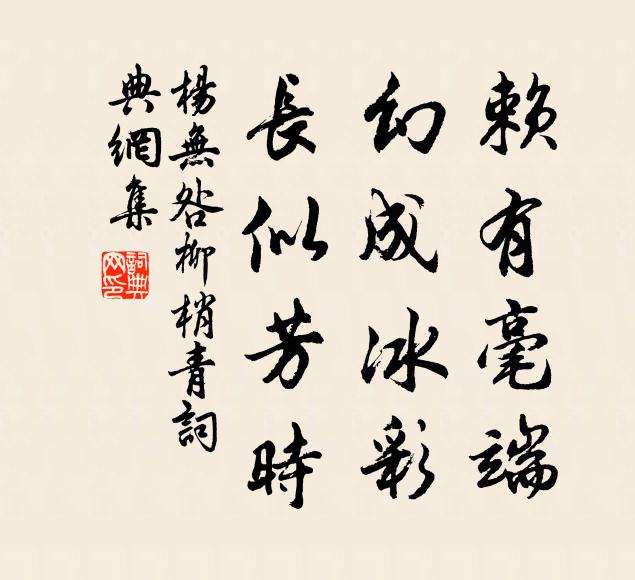 賴有毫端
幻成冰彩
長似芳時
楊無咎柳梢青詞
典網集
詞典網印